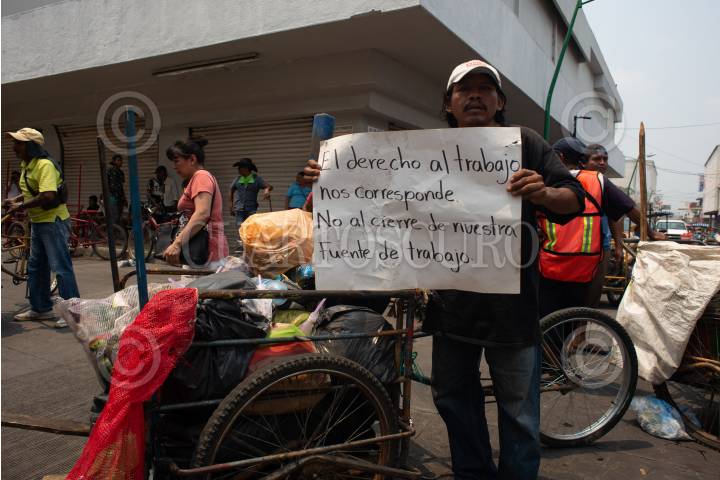 El derecho al trabajo
nos corresponde
No al cierre de nuestra
Fuente de trabajo.
CUARTOSCURO